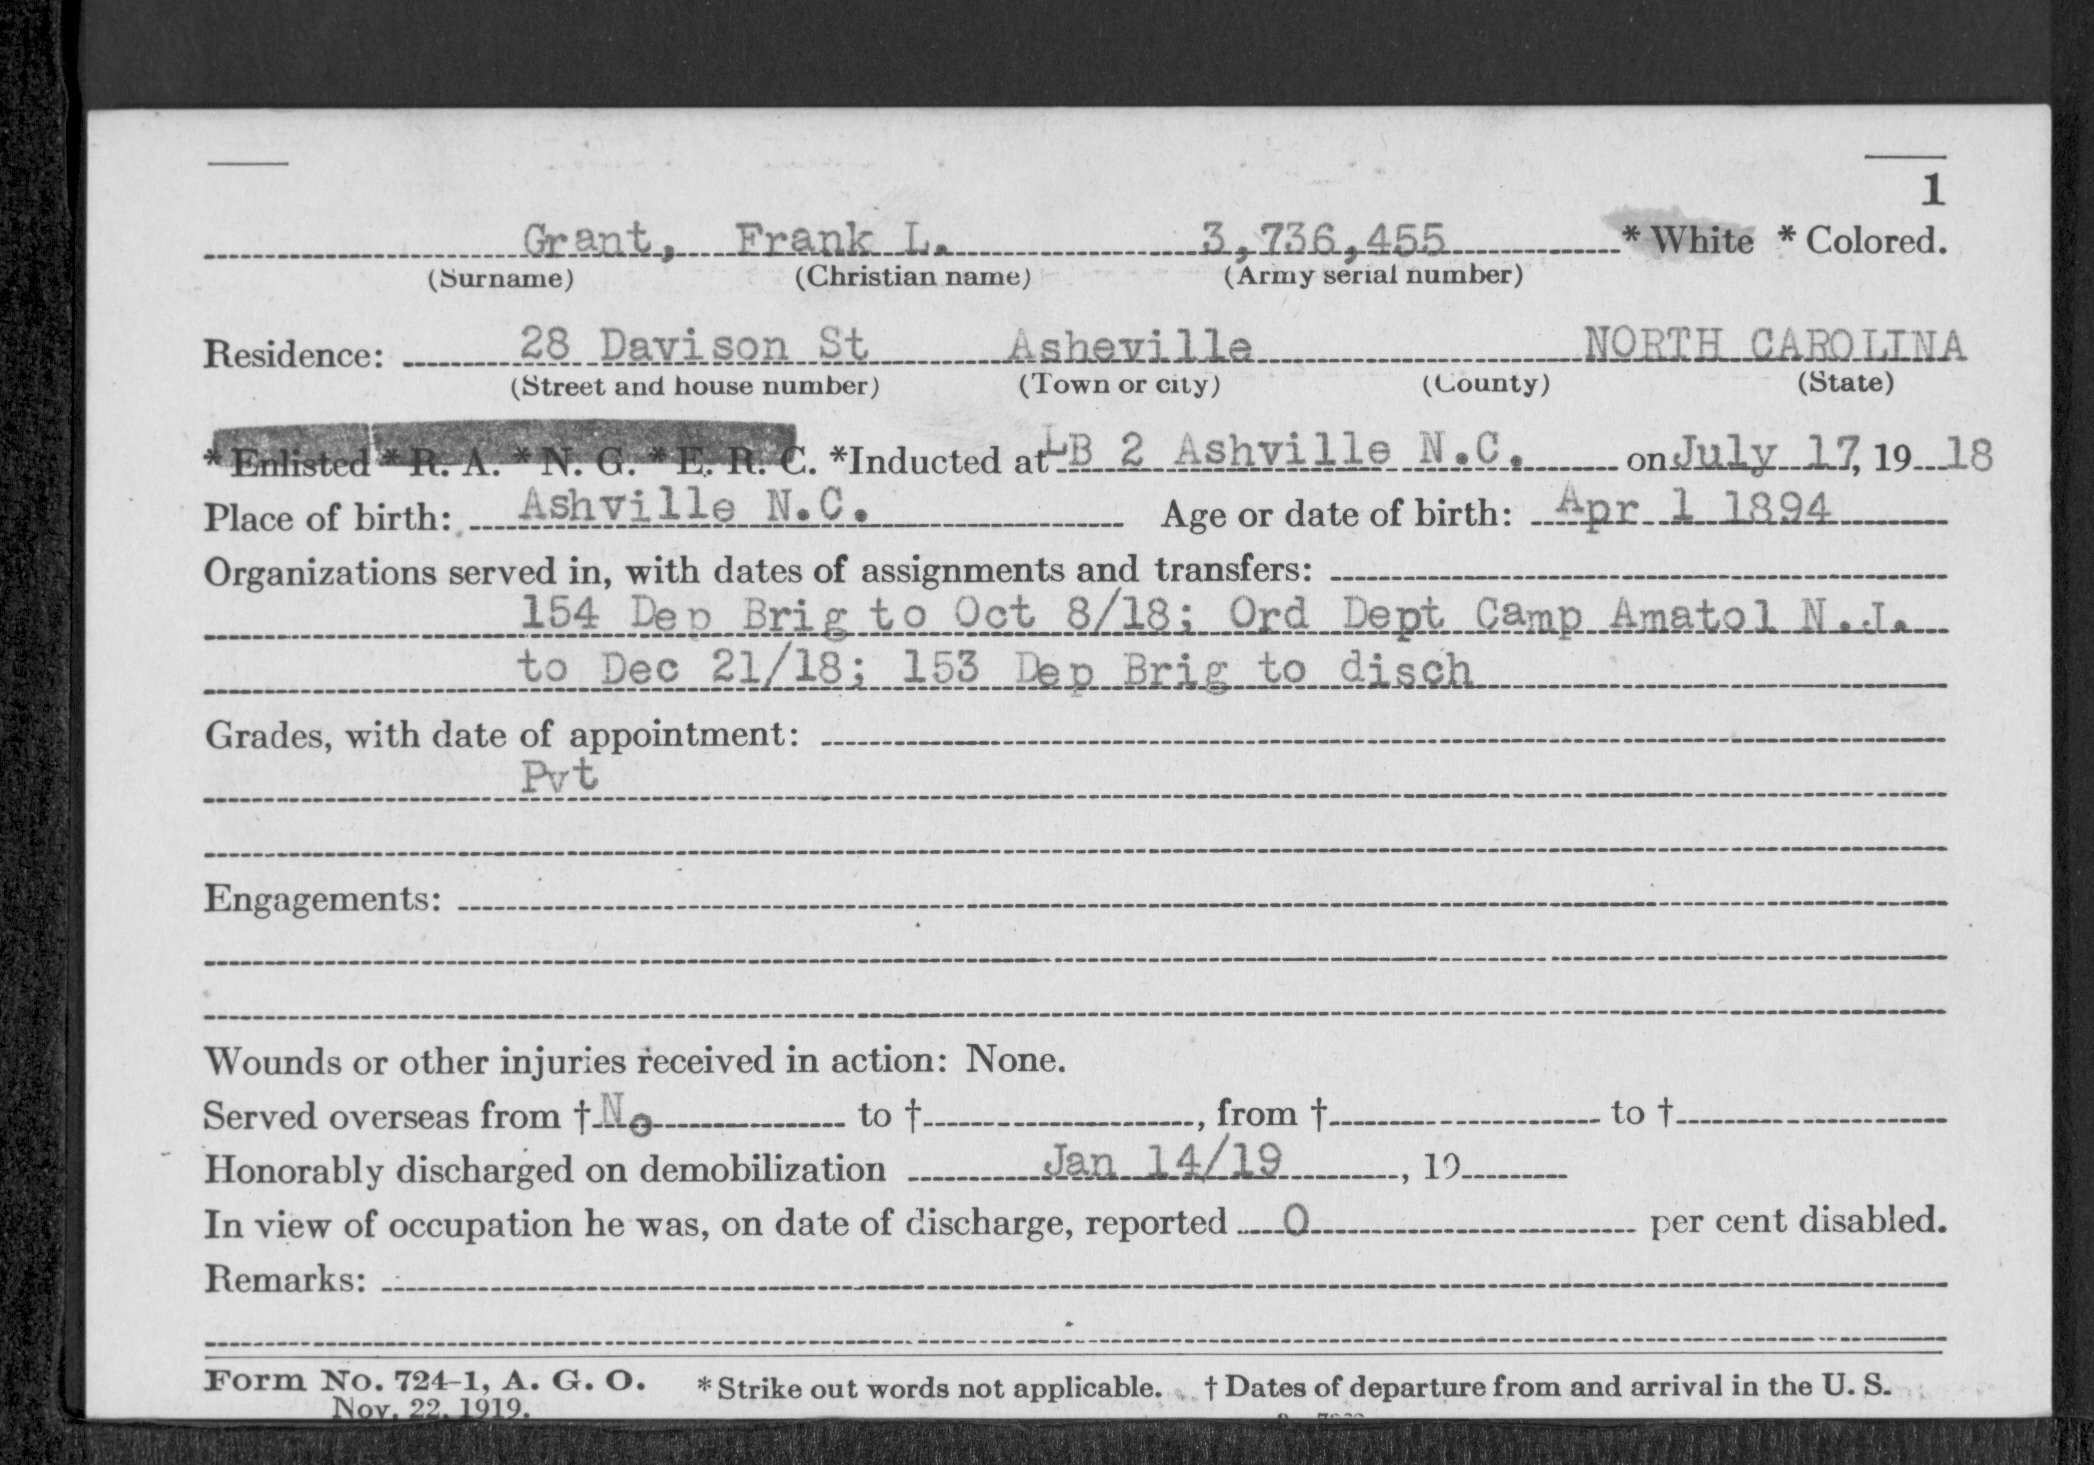 1
Grant, Frank L. 3,736,455 * White * Colored.
(Surname) (Christian name) (Army serial number)
Residence: 28 Davison St Asheville NORTH CAROLINA
(Street and house number) (Town or city) (County) (State)
* Enlisted * R. A. * N. G. * E. R. C. *Inducted at LB 2 Ashville N.C. on July 17, 19 18
Place of birth: Ashville N.C. Age or date of birth: Apr 1 1894
Organizations served in, with dates of assignments and transfers:
154 Dep Brig to Oct 8/18; Ord Dept Camp Amatol N.J.
to Dec 21/18; 153 Dep Brig to disch
Grades, with date of appointment:
Pvt
Engagements:
Wounds or other injuries received in action: None.
Served overseas from † No to †, from † to †
Honorably discharged on demobilization Jan 14/19, 19
In view of occupation he was, on date of discharge, reported 0 per cent disabled.
Remarks:
Form No. 724-1, A. G. O. * Strike out words not applicable. † Dates of departure from and arrival in the U. S.
Nov. 22, 1919.